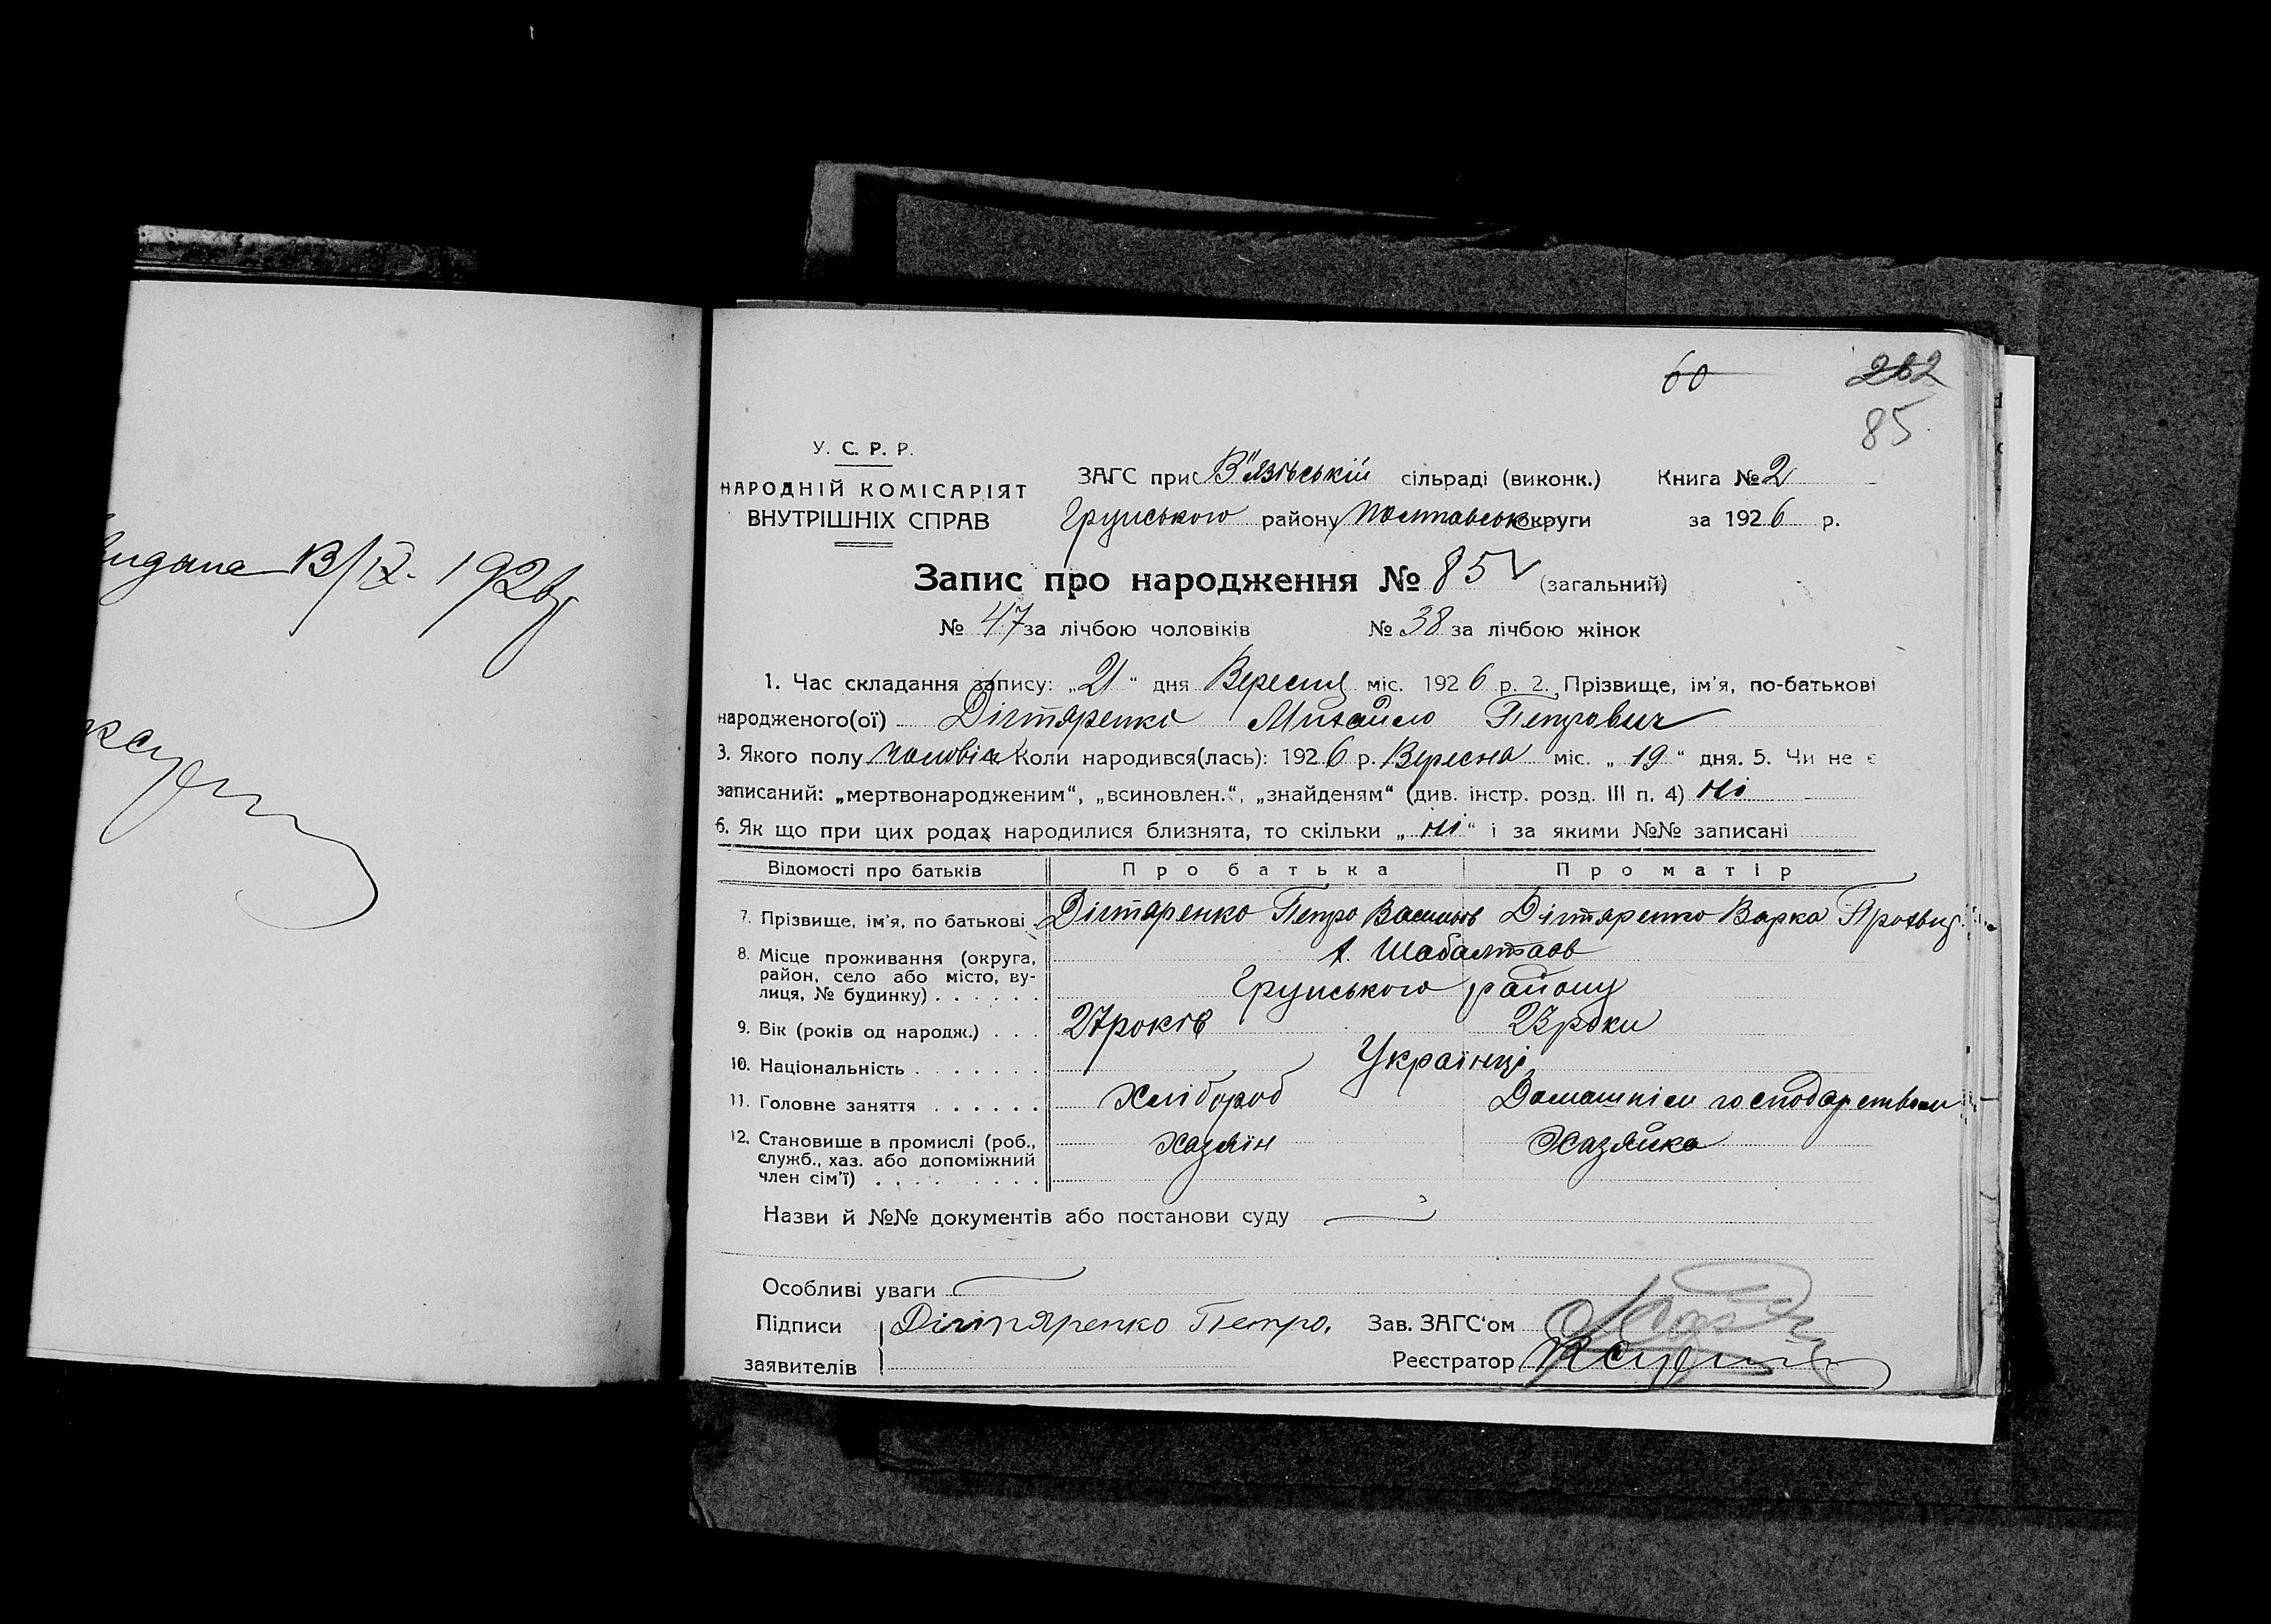 видана 13/IX. 1926р
60
262
85
У. С. Р. Р.
НАРОДНІЙ КОМІСАРІЯТ
ВНУТРІШНІХ СПРАВ
ЗАГС при В"язівській сільраді (виконк.) Книга № 2
Грунського району Полтавськ округи за 1926 р.
Запис про народження № 85 (загальний)
№ 47 за лічбою чоловіків № 38 за лічбою жінок
1. Час складання запису: „21“ дня Вересня міс. 1926 р. 2. Прізвище, ім'я, по-батькові
народженого(ої) Дігтяренко Михайло Петрович
3. Якого полу чоловіч Коли народився(лась): 1926 р. Вересня міс. „19“ дня. 5. Чи не є
записаний: „мертвонародженим“, „всиновлен.“, „знайденям“ (див. інстр. розд. III п. 4) Ні
6. Як що при цих родах народилися близнята, то скільки „Ні“ і за якими №№ записані
Відомості про батьків Про батька Про матір
7. Прізвище, ім'я, по батькові Дігтяренко Петро Васильов Дігтяренко Варка
8. Місце проживання (округа, район, село або місто, вулиця, № будинку) . . . . . .
Грунського району
9. Вік (років од народж.) . . . 27 років 23 роки
10. Національність . . . . . . . Українці
11. Головне заняття . . . . . . Хлібороб Домашнім господарством
12. Становище в промислі (роб., Хазяїн Хазяйка
служб., хаз. або допоміжний
член сім'ї) . . . . . . . . .
Назви й №№ документів або постанови суду
Особливі уваги
Підписи Дігтяренко Петро. Зав. ЗАГС'ом
заявителів Реєстратор